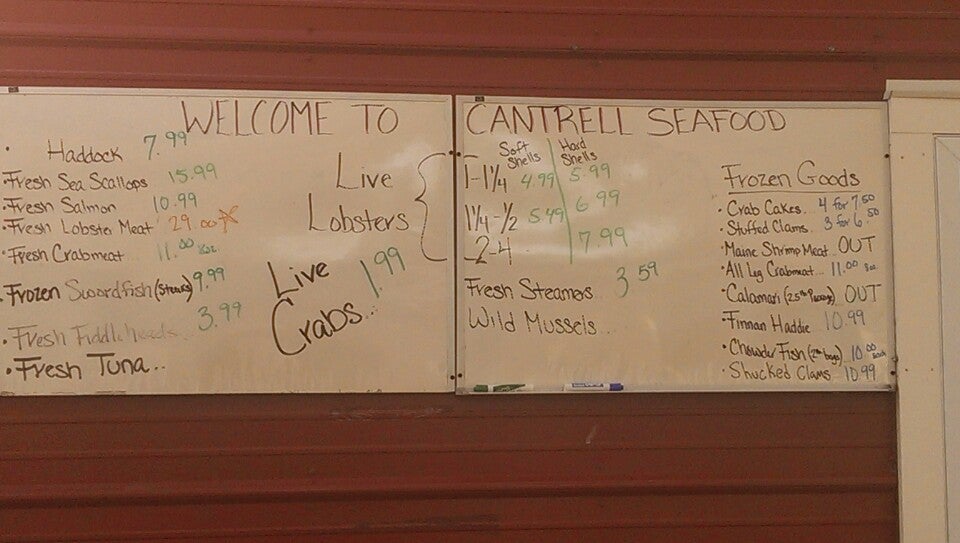 WELCOME TO CANTRELL SEAFOOD
• Haddock 7.99
• Fresh Sea Scallops 15.99
• Fresh Salmon 10.99
• Fresh Lobster Meat 29.00
• Fresh Crabmeat 11.00 8oz.
• Frozen Swordfish (Steaks) 9.99
• Fresh Fiddleheads... 3.99
• Fresh Tuna..
Live
Lobsters
Live
Crabs... 1.99
Soft Shells Hard Shells
1-1¼ 4.99 5.99
1¼-½ 5.49 6.99
2-4 7.99
Fresh Steamers.. 3.59
Wild Mussels...
Frozen Goods
• Crab Cakes.. 4 for 7.50
• Stuffed Clams. 3 for 6.50
• Maine Shrimp Meat OUT
• All Leg Crabmeat.. 11.00 8oz
• Calamari (2.5 lb) OUT
• Finnan Haddie 10.99
• Chowder Fish (2 lb bags) 10.00 each
• Shucked Clams 10.99